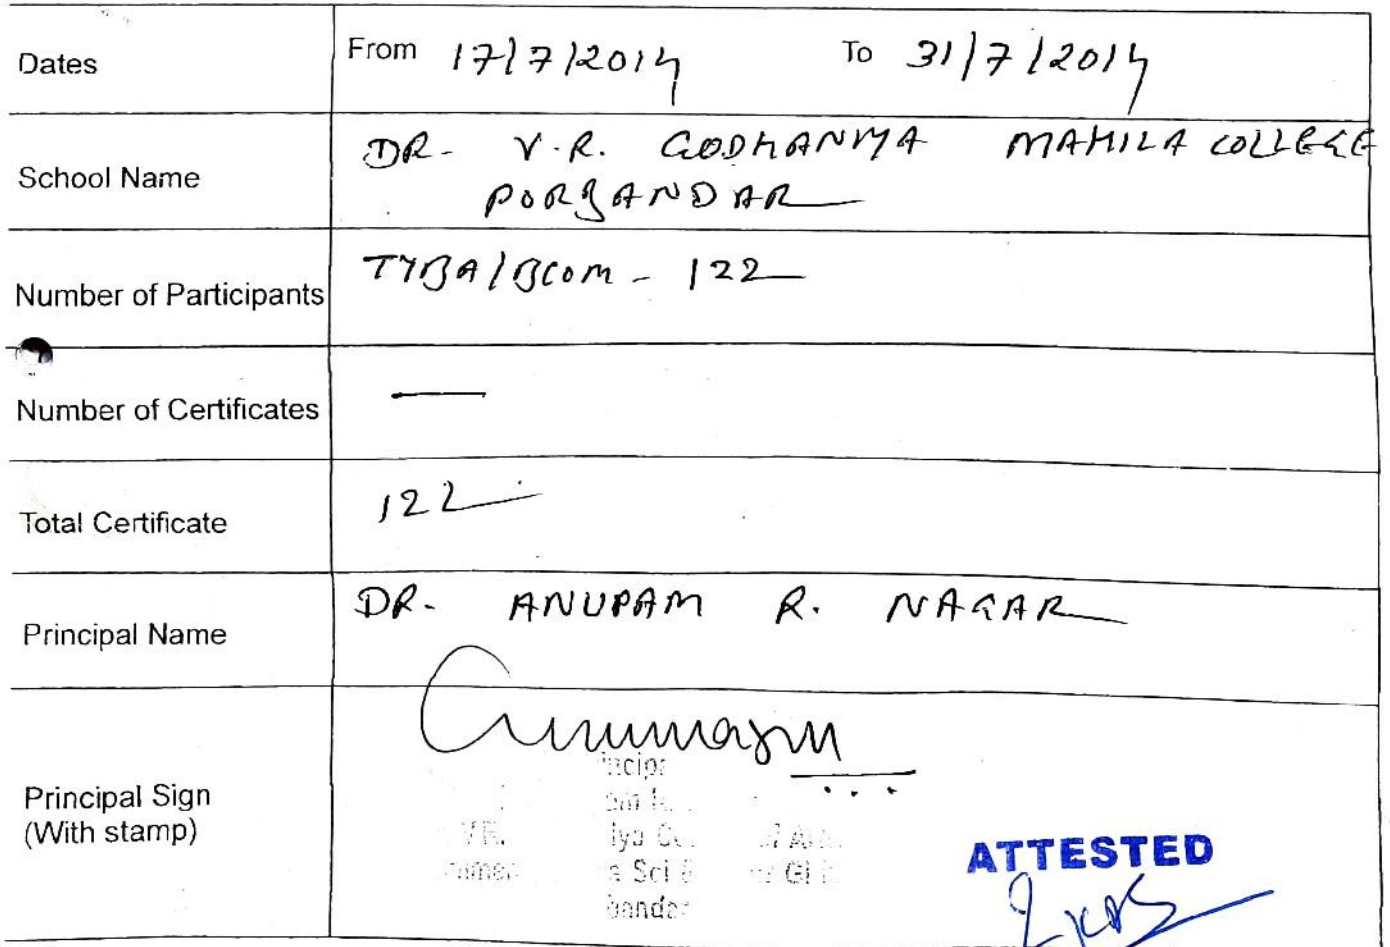 Dates From 17/7/2014 To 31/7/2014
School Name DR- V.R. GODHANIYA MAHILA COLLEGE
PORBANDAR
Number of Participants TYBA/BCOM - 122
Number of Certificates —
Total Certificate 122
Principal Name DR. ANUPAM R. NAGAR
Principal Sign
(With stamp)
ATTESTED